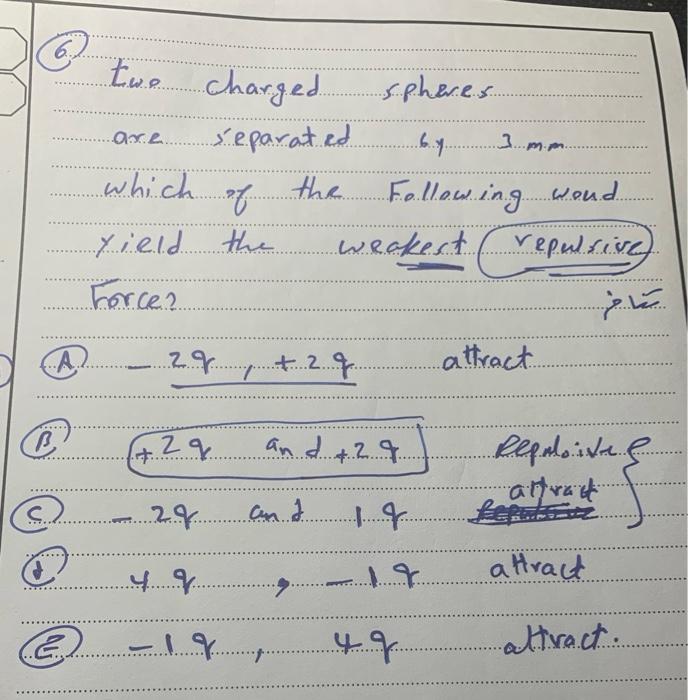 6
two charged spheres
are separated by 3 mm
which of the Following woud
yield the weakest repulsive
Force? تنافر
A - 2q , + 2q attract
B +2q and +2q Repulsive
C - 2q and 1q attract
d 4q , -1q attract
E -1q , 4q attract.